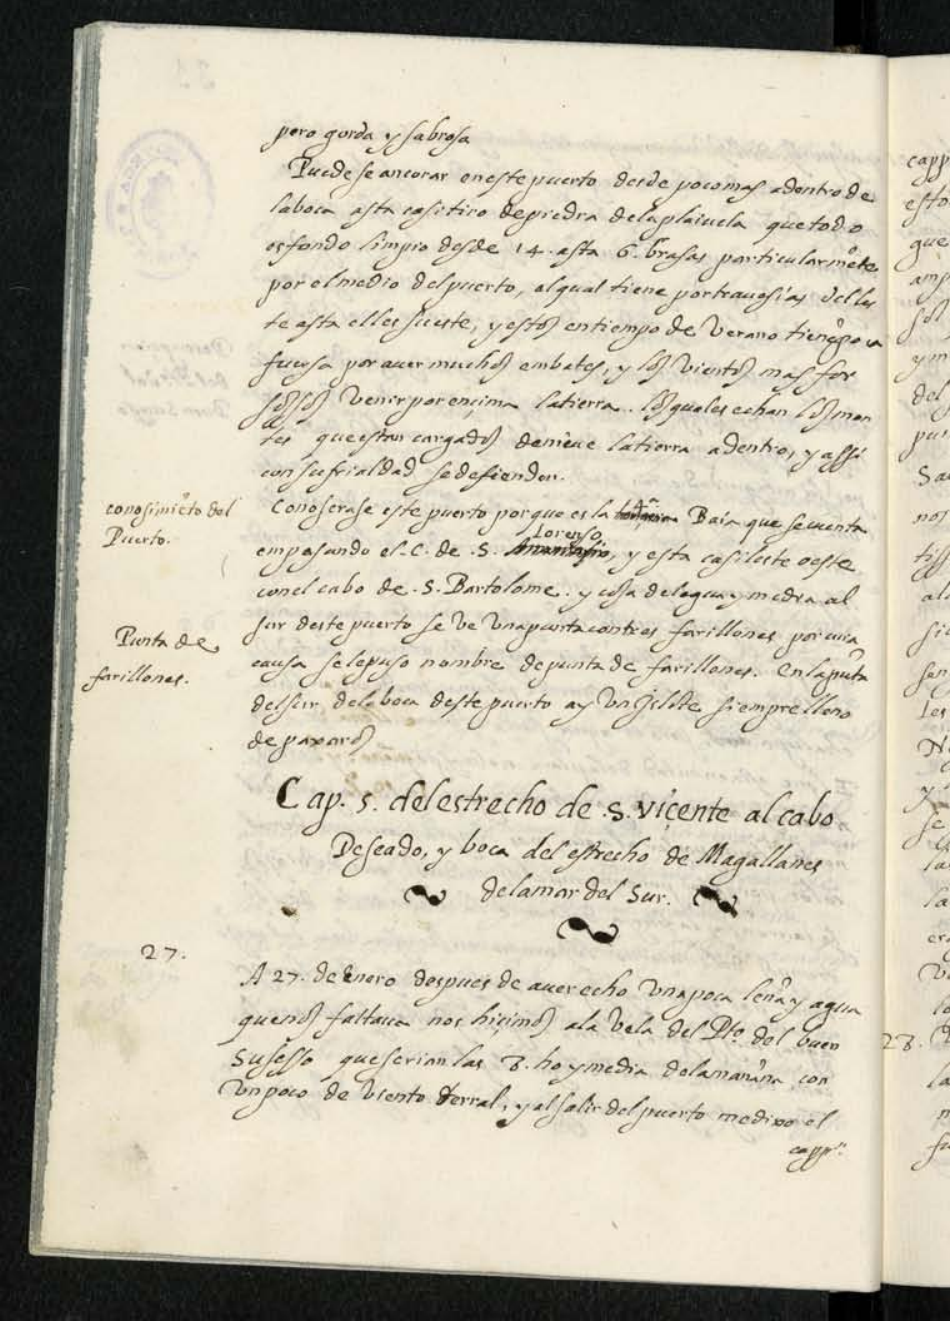 pero gorda y sabrosa
Puede se ancorar en este puerto desde poco mas adentro de
la boca asta casi tiro de piedra dela plaiuela que todo
es fondo limpio desde 14. asta 6. brasas particularmẽte
por el medio del puerto, el qual tiene por trauesias delles
te asta elles sueste, y estos en tiempo de Verano tienẽ poca
fuersa por auer muchos embates, y los vientos mas for
sosos venir por ençima la tierra. los quales echan los mon
tes que estan cargados de nieue la tierra adentro, y assi
con su frialdad se defienden.
conosimiẽto del
Puerto.
Conoserase este puerto porque es la Baia que se cuenta
Lorenso,
empesando el .C. de .S. y esta casi leste oeste
con el cabo de .S. Bartolome. y cosa de legua y media al
sur deste puerto se ve vna punta con tres farillones por cuia
Punta de
farillones.
causa se le puso nombre de punta de farillones. En la pũta
del sur dela boca deste puerto ay vn Jslote siempre lleno
de paxaros
Cap. 5. del estrecho de .S. viçente al cabo
Deseado, y boca del estrecho de Magallanes
dela mar del Sur.
27.
A 27. de Enero despues de auer echo vna poca leña y agua
que nos faltaua nos hiçimos ala vela del Pto. del buen
Susesso que serian las 8. ho y media dela mañana con
vn poco de viento terral, y al salir del puerto me dixo el
capp.n
capp
esto
que
amp
sol
y m
del
pu
Sa
nos
tiss
ala
si
sen
les
N
y
se
la
la
er
V
lo
28.
la